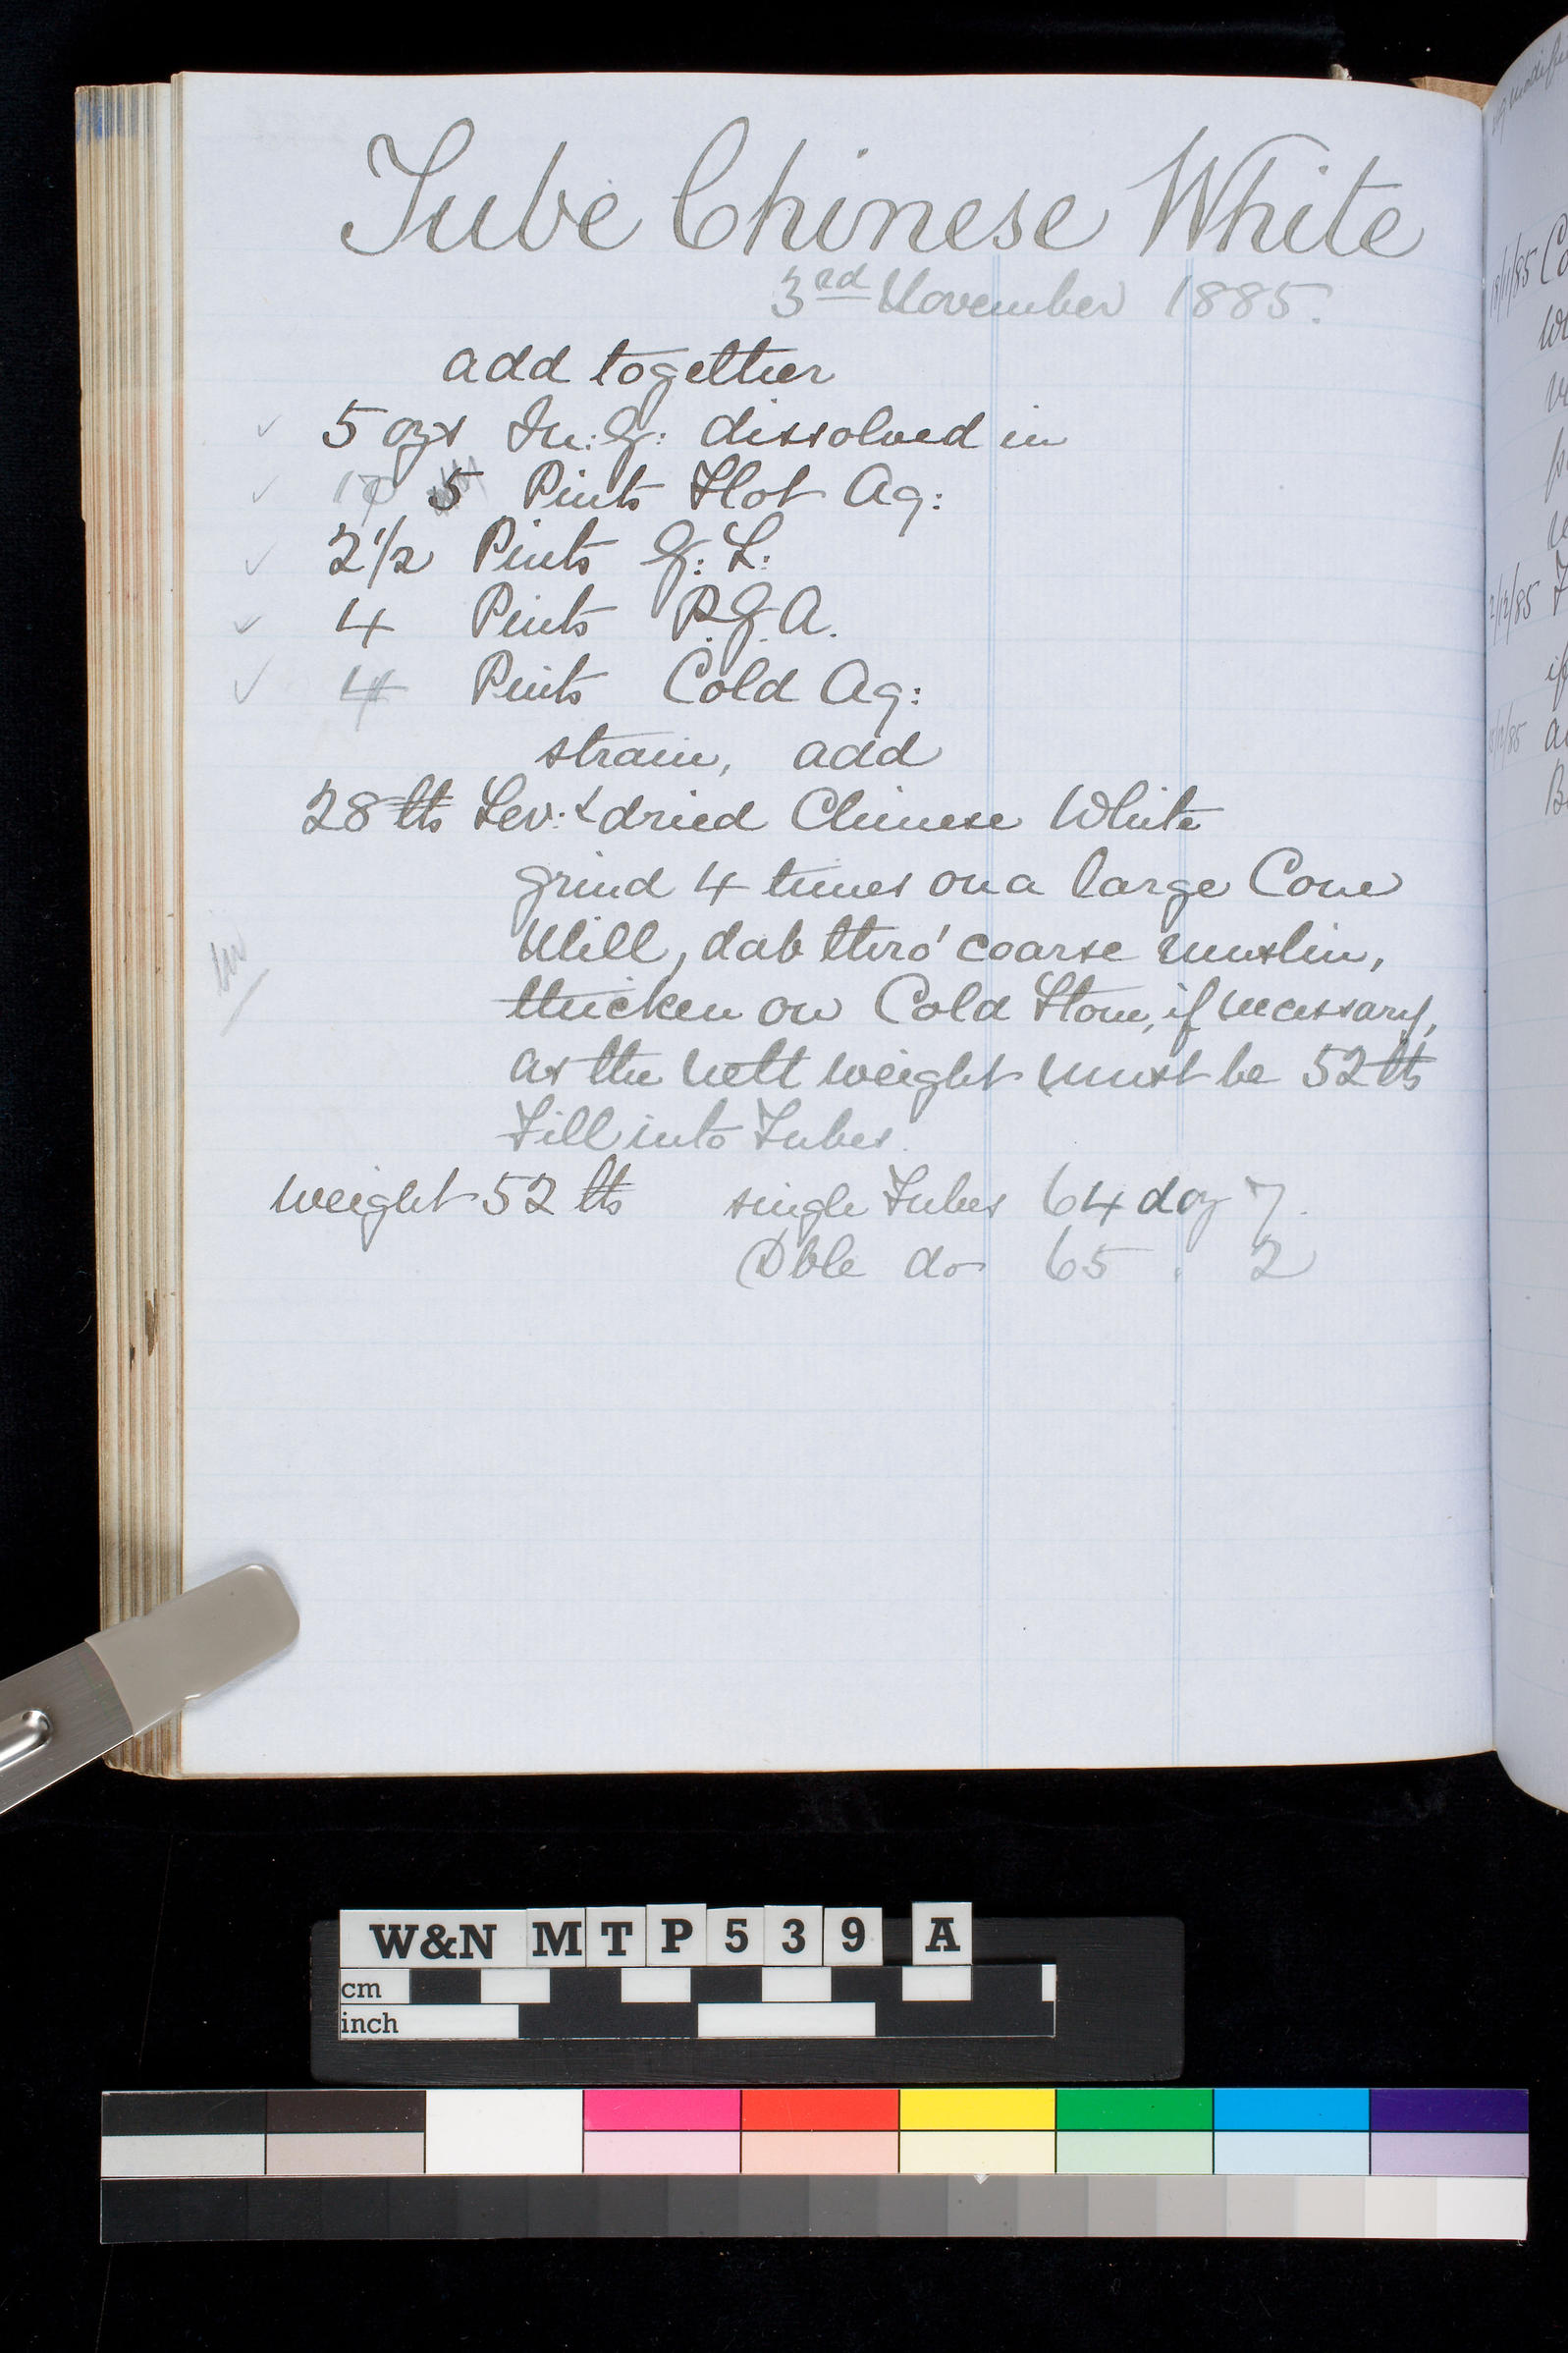 Tube Chinese White
3rd November 1885.
add together
5 ozs In: G: dissolved in
5 Pints Hot Aq:
2 1/2 Pints G: L:
4 Pints P.G.A.
4 Pints Cold Aq:
strain, add
28 lbs Lev: & dried Chinese White
grind 4 times on a large Cone
Mill, dab thro' coarse muslin,
thicken on Cold Stone, if necessary,
as the nett weight must be 52 lbs
Fill into Tubes.
weight 52 lbs single Tubes 64 doz 7.
Dble do 65 . 2
18/11/85 Co
2/12/85
W&N MTP539 A
cm
inch